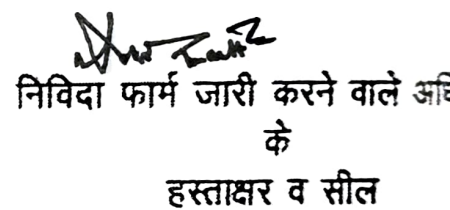 निविदा फार्म जारी करने वाले
के
हस्ताक्षर व सील